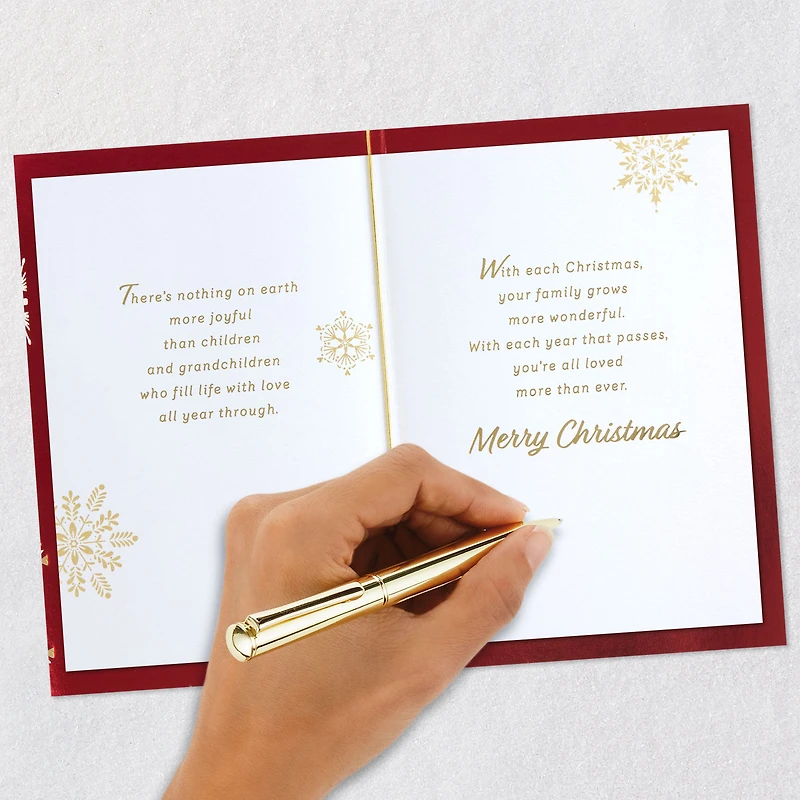 There's nothing on earth
more joyful
than children
and grandchildren
who fill life with love
all year through.
With each Christmas,
your family grows
more wonderful.
With each year that passes,
you're all loved
more than ever.
Merry Christmas